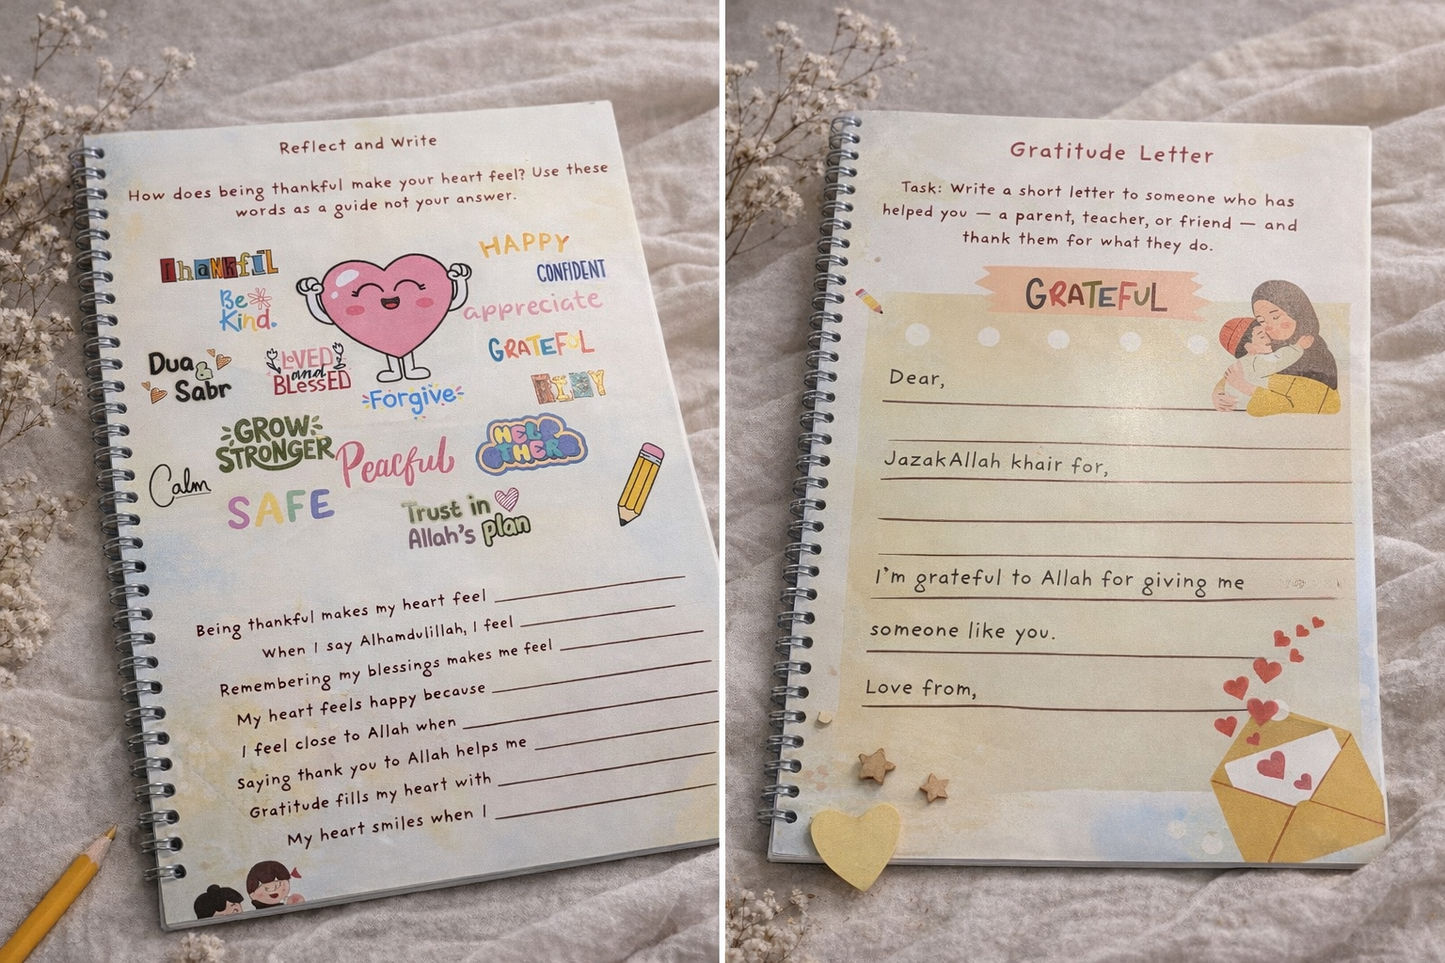 Reflect and Write
How does being thankful make your heart feel? Use these
words as a guide not your answer.
thankful
HAPPY
Be
Kind.
CONFIDENT
appreciate
Dua
&
Sabr
LOVED
and
BLESSED
GRATEFUL
Forgive
GROW
STRONGER
Peaceful
HELP
OTHERS
Calm
SAFE
Trust in
Allah's plan
Being thankful makes my heart feel
When I say Alhamdulillah, I feel
Remembering my blessings makes me feel
My heart feels happy because
I feel close to Allah when
Saying thank you to Allah helps me
Gratitude fills my heart with
My heart smiles when I
Gratitude Letter
Task: Write a short letter to someone who has
helped you — a parent, teacher, or friend — and
thank them for what they do.
GRATEFUL
Dear,
JazakAllah khair for,
I'm grateful to Allah for giving me
someone like you.
Love from,